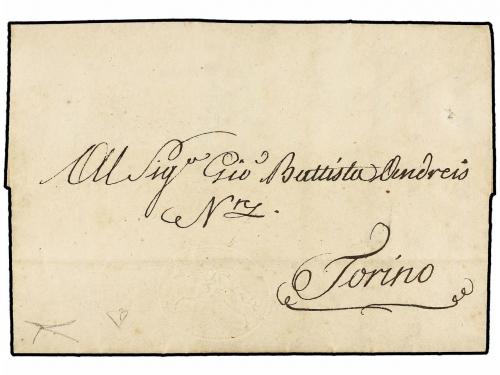 Al Sig.r Gio. Battista Andreis
Torino